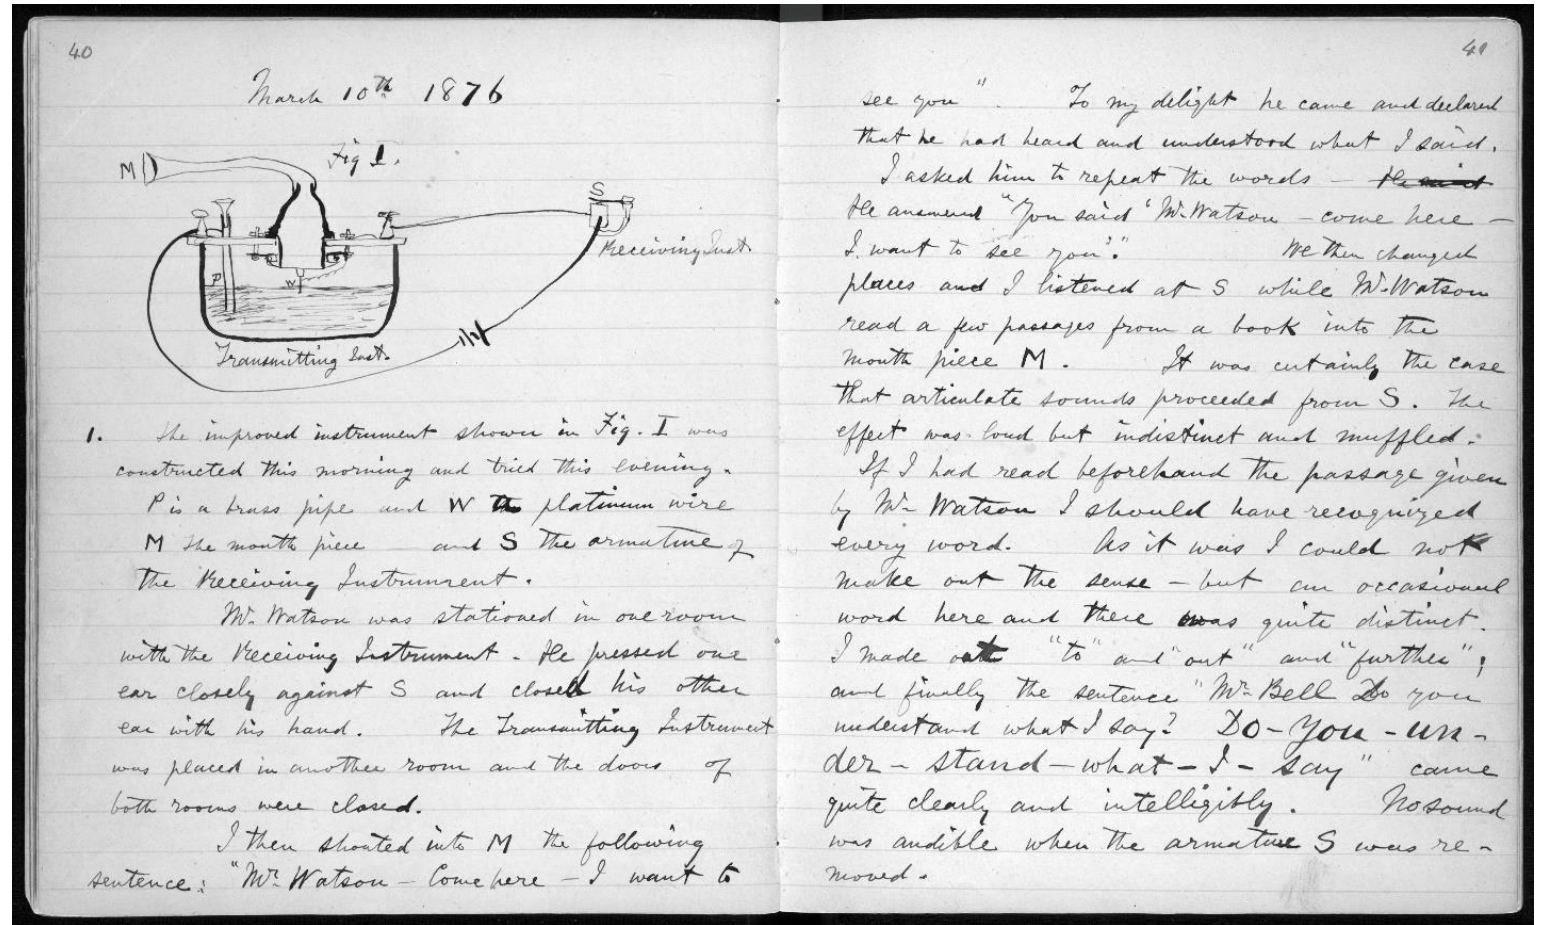 40
March 10th 1876
Fig 1.
M
S
Receiving Inst.
P
W
Transmitting Inst.
1. The improved instrument shown in Fig. I was
constructed this morning and tried this evening.
P is a brass pipe and W the platinum wire
M the mouth piece — and S the armature of
the Receiving Instrument.
Mr. Watson was stationed in one room
with the Receiving Instrument. He pressed one
ear closely against S and closed his other
ear with his hand. The Transmitting Instrument
was placed in another room and the doors of
both rooms were closed.
I then shouted into M the following
sentence: "Mr. Watson — Come here — I want to
41
see you". To my delight he came and declared
that he had heard and understood what I said.
I asked him to repeat the words —
He answered "You said 'Mr. Watson — come here —
I want to see you'." We then changed
places and I listened at S while Mr. Watson
read a few passages from a book into the
mouth piece M. It was certainly the case
that articulate sounds proceeded from S. The
effect was loud but indistinct and muffled.
If I had read beforehand the passage given
by Mr. Watson I should have recognized
every word. As it was I could not
make out the sense — but an occasional
word here and there was quite distinct.
I made out "to" and "out" and "further";
and finally the sentence "Mr. Bell Do you
understand what I say? Do-You-un-
der-stand-what-I-say" came
quite clearly and intelligibly. No sound
was audible when the armature S was re-
moved.